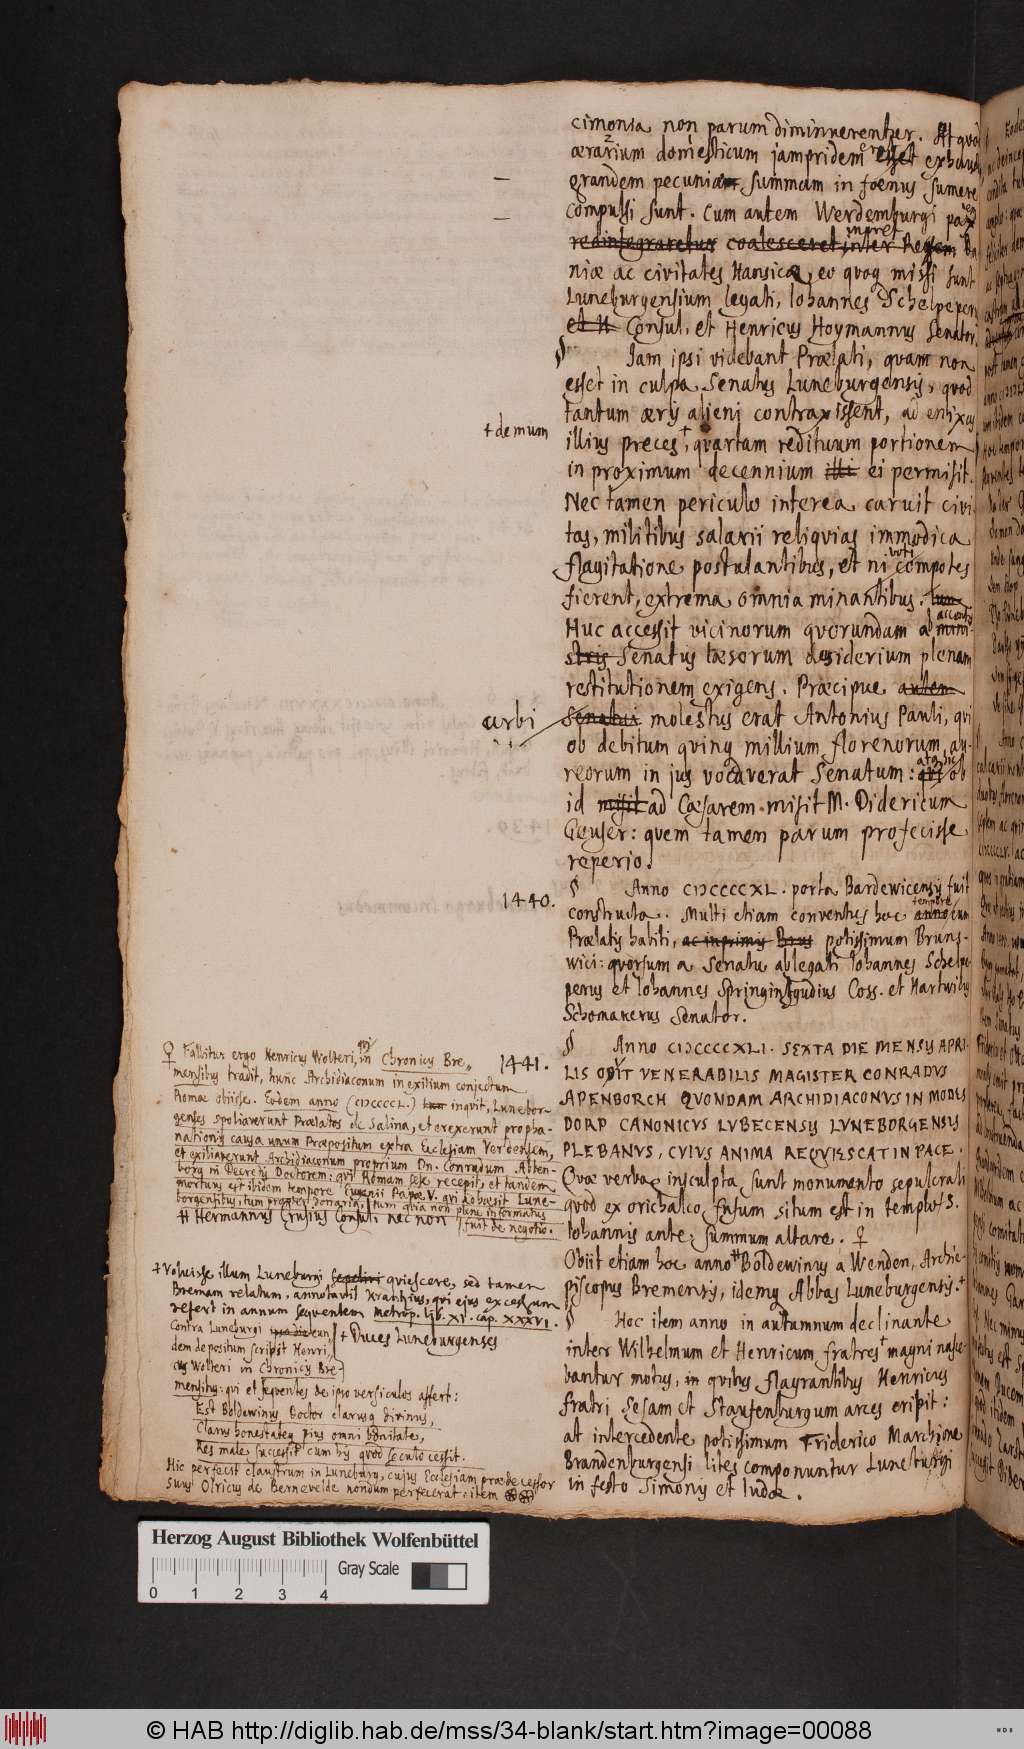 cimonia non parum diminuerentur. At quod
ærarium domesticum jampridem esset exhaus
grandem pecuniam summam in foenus sumere
compulsi sunt. Cum autem Werdemburgi pax
redintegraretur coalesceret inter Regem Da
niæ ac civitates Hansicas, eo quoq missi sunt
Luneburgensium legati, Iohannes Schelpeperus
et H Consul, et Henricus Hoymannus Senator.
§ Iam ipsi videbant Prælati, quam non
esset in culpa Senatus Luneburgensis, quod
tantum æris alieni contraxissent, ad enixas
+ demum
illius preces +, quartam redituum portionem
in proximum decennium illi ei permisit.
Nec tamen periculo interea caruit civi-
tas, militibus salarii reliquias immodica
flagitatione postulantibus, et ni voti compotes
fierent, extrema omnia minantibus.
Huc accessit vicinorum quorundam ab mini-
stris Senatus læsorum desiderium plenam
restitutionem exigens. Præcipue autem
urbi
Senatui molestus erat Antonius Pauli, qui
ob debitum quinq millium florenorum au-
reorum in jus vocaverat Senatum: qui ob
id misit ad Cæsarem misit M. Didericum
Geuser: quem tamen parum profecisse
reperio.
1440.
§ Anno CIↃCCCCXL. porta Bardewicensis fuit
constructa. Multi etiam conventus hoc anno tempore cum
Prælatis habiti, ac inprimis Brus potissimum Bruns-
wici: quorsum a Senatu ablegati Iohannes Schelpe
perus et Iohannes Springintgudius Coss. et Hartwihus
Schomakerus Senator.
1441.
§ Anno CIↃCCCCXLI. SEXTA DIE MENSIS APRI-
LIS OBIIT VENERABILIS MAGISTER CONRADVS
APENBORCH QVONDAM ARCHIDIACONVS IN MODES
DORP CANONICVS LVBECENSIS LVNEBORGENSIS
PLEBANVS, CVIVS ANIMA REQVIESCAT IN PACE.
Quæ verba insculpta sunt monumento sepulcrali
quod ex orichalco fusum situm est in templo S.
Iohannis ante summum altare. ♀
Obiit etiam hoc anno # Boldewinus a Wenden, Archie-
piscopus Bremensis, idemq Abbas Luneburgensis. +
§ Hoc item anno in autumnum declinante
inter Wilhelmum et Henricum fratres + magni nasce-
bantur motus, in quibus flagrantibus Henricus
fratri Sesam et Staufenburgum arces eripit:
at intercedente potissimum Friderico Marchione
Brandenburgensi lites componuntur
in festo Simonis et Iudæ.
♀ Fallitur ergo Henricus Wolteri, qui in Chronicis Bre-
mensibus tradit, hunc Archidiaconum in exilium conjectum
Romæ obiisse. Eodem anno (CIↃCCCCL.) inquit, Lunebor-
genses spoliaverunt Prælatos de Salina, et erexerunt propha-
nationis causa unum Præpositum extra Ecclesiam Verdensem,
et exiliaverunt Archidiaconum proprium Dn. Conradum Abben-
borg in Decretis Doctorem: qui Romam sese recepit, et tandem
mortuus est ibidem tempore Eugenii Papæ V. qui favebat Lune-
borgentibus, tum propter honaria, tum quia non plene informatus
fuit de negotio.
# Hermannus Crusius Consul, nec non
+ Voluisse illum Luneburgi sepeliri quiescere, sed tamen
Bremam relatum, annotavit Krantzius, qui ejus excessum
refert in annum sequentem Metrop. lib. XI. cap. XXXVI.
+ Duces Luneburgenses
Contra Luneburgi eun-
dem depositum scripsit Henri-
cus Wolteri in Chronicis Bre-
mensibus: qui et sequentes de ipso versiculos affert:
Est Boldewinus Doctor clarusq divinus,
Clarus honestateq pius omni bonitate,
Res male successit cum his quod seculo cessit.
Hic perfecit claustrum in Luneburg, cujus Ecclesiam prædecessor
suus Olricus de Bernevelde nondum perfecerat: item
Herzog August Bibliothek Wolfenbüttel
Gray Scale
0 1 2 3 4
© HAB http://diglib.hab.de/mss/34-blank/start.htm?image=00088